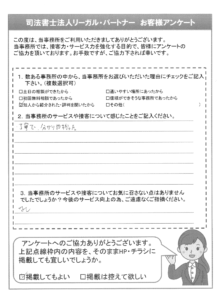 司法書士法人リーガル・パートナー お客様アンケート
この度は、当事務所をご利用いただきましてありがとうございます。
当事務所では、接客力・サービス力を強化する目的で、皆様にアンケートの
ご協力を頂いております。お手数ですが、ご協力下されば幸いです。
1. 数ある事務所の中から、当事務所をお選びいただいた理由にチェックをご記入
下さい。(複数選択可)
□土日の相談ができたから □通いやすい場所にあったから
□相談無料時間であったから
□知人から紹介された・評判を聞いたから □その他(
2. 当事務所のサービスや接客について感じたことをご記入ください。
丁寧で
3. 当事務所のサービスや接客についてお気に召さない点はありません
でしたでしょうか?今後のサービス向上の為、ご遠慮なくご指摘ください。
なし
アンケートへのご協力ありがとうございます。
上記点線枠内の内容を、そのままHP・チラシに
掲載しても宜しいでしょうか。
☑掲載してもよい □掲載は控えて欲しい